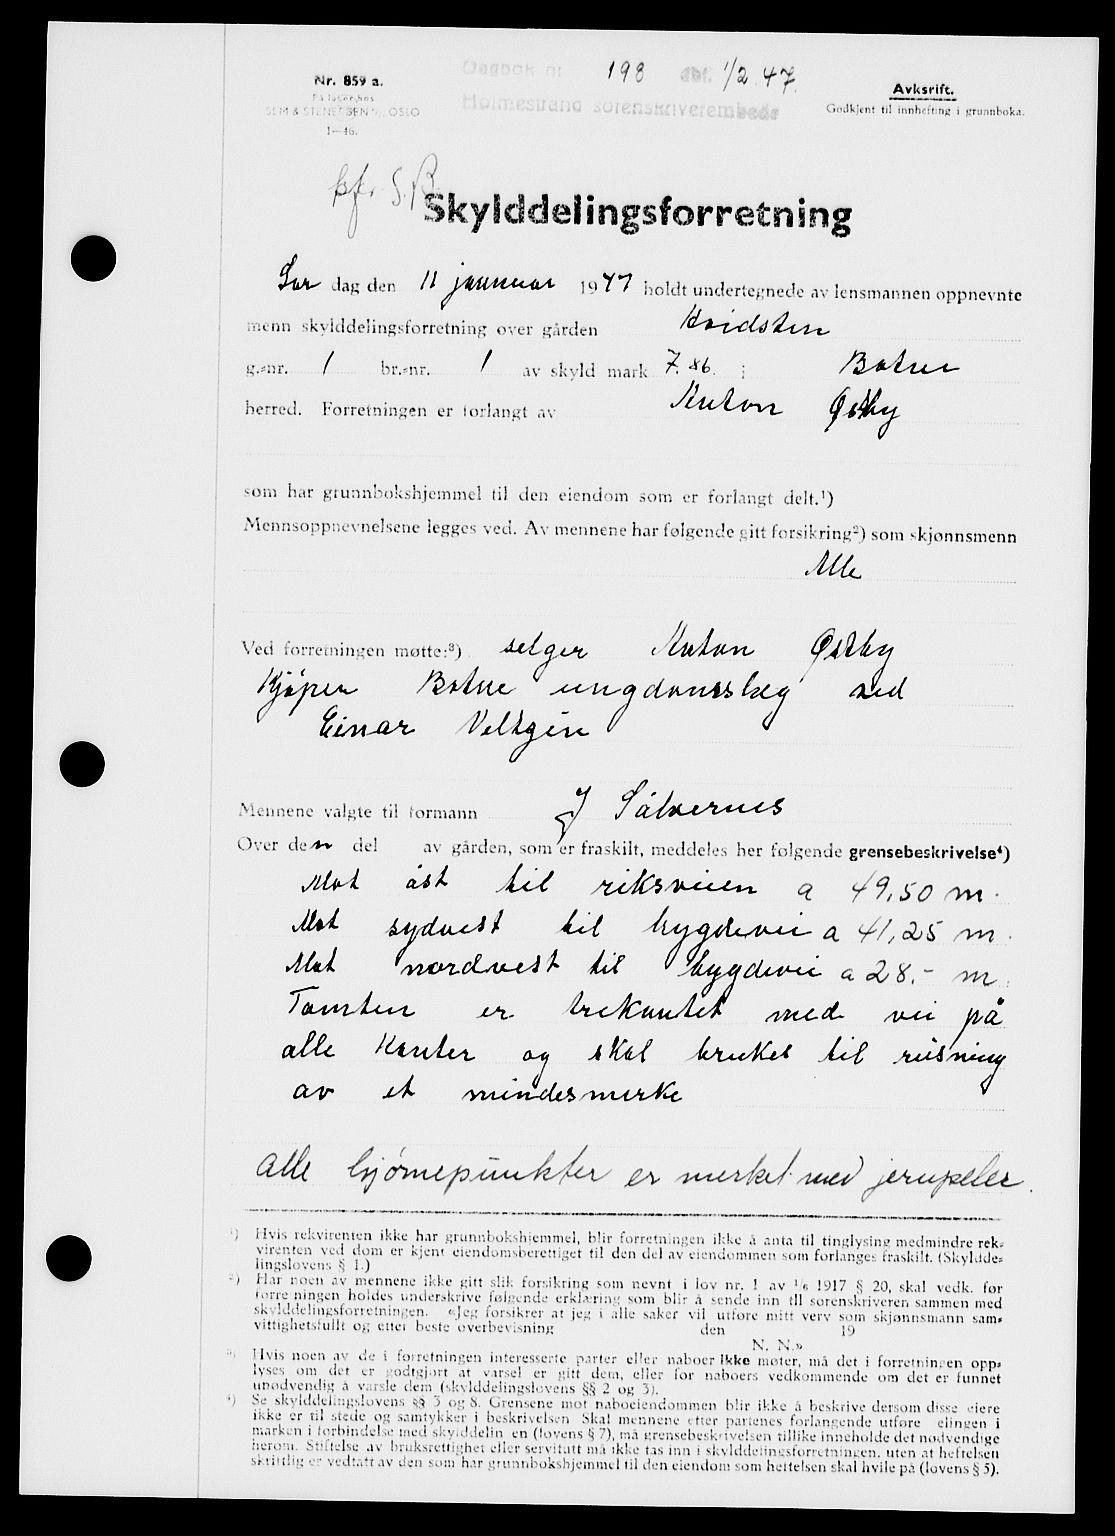 Dagbok nr. 198 dbf. 1/2 47.
Holmestrand sorenskriverembede
Nr. 859 a.
På lager hos
SEM & STENERSEN A/S, OSLO
1—46.
Avksrift.
Godkjent til innhefting i grunnboka.
Skylddelingsforretning
Lør dag den 11 januuar 1947 holdt undertegnede av lensmannen oppnevnte
menn skylddelingsforretning over gården Kvidsten
g.-nr. 1 br.-nr. 1 av skyld mark 7.86. i Botne
herred. Forretningen er forlangt av Anton Østby
som har grunnbokshjemmel til den eiendom som er forlangt delt.¹)
Mennsoppnevnelsene legges ved. Av mennene har følgende gitt forsikring²) som skjønnsmenn
Alle
Ved forretningen møtte:³) selger Anton Østby
Kjøper Botne ungdomslag ved
Einar
Mennene valgte til formann J Sålvernes
Over den del av gården, som er fraskilt, meddeles her følgende grensebeskrivelse⁴)
Mot øst til riksveien a 49,50 m.
Mot sydvest til bygdevei a 41,25 m.
Mot nordvest til bygdevei a 28.- m.
Tomten er trekantet med vei på
alle kanter og skal brukes til reisning
av et mindesmerke
alle hjørnepunkter er merket med jernpeler.
¹) Hvis rekvirenten ikke har grunnbokshjemmel, blir forretningen ikke å anta til tinglysing medmindre rek-
virenten ved dom er kjent eiendomsberettiget til den del av eiendommen som forlanges fraskilt. (Skyldde-
lingslovens § 1.)
²) Har noen av mennene ikke gitt slik forsikring som nevnt i lov nr. 1 av 1/6 1917 § 20, skal vedk. før
forre ningen holdes underskrive følgende erklæring som blir å sende inn til sorenskriveren sammen med
skylddelingsforretningen. «Jeg forsikrer at jeg i alle saker vil utføre mitt verv som skjønnsmann sam-
vittighetsfullt og etter beste overbevisning den 19
N. N.»
³) Hvis noen av de i forretningen interesserte parter eller naboer ikke møter, må det i forretningen opp-
lyses om det er godtgjort at varsel er gitt dem, eller for naboers vedkommende om det er funnet
unødvendig å varsle dem (skylddelingslovens §§ 2 og 3).
⁴) Se skylddelingslovens §§ 3 og 8. Grensene mot naboeiendommen blir ikke å beskrive dersom disse eiere
ikke er til stede og samtykker i beskrivelsen Skal mennene etter partenes forlangende utføre elingen i
marken i forbindelse med skylddelin en (lovens § 7), må grensebeskrivelsen tillike inneholde det nødvendige
herom. Stiftelse av bruksrettighet eller servitutt må ikke tas inn i skylddelingsforretningen, uten at heftelsen
skriftlig er vedtatt av den som har grunnbokshjemmel til den eiendom som heftelsen skal hvile på (lovens § 5).